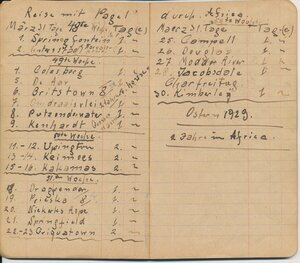 Reise mit "Pagel"
März 31 Tage 48te Woche Tag(e)
1. Springfontein 1 ~
49te Woche
5. Colesberg 1 ~
5. De Aar 1 ~
6. Britstown 1 ~
7. Omdraaisvlei 1 ~
8. Putzonderwater 1 ~
9. Kenhardt 1 ~
50te Woche
11.-12. Upington 2 ~
13.-14. Keimoes 2 ~
15.-16. Kakamas 2 ~
51te Woche
18. Draghoender 1 ~
19. Prieska 1 ~
20. Niekerks Hope 1 ~
21. Springfield 1 ~
22.-23 Griquatown 2 ~
durch Africa
März 31 Tage Tag(e)
25. Campell 1 ~
26. Douglas 1 ~
27. Modder River 1 ~
28. Jacobsdale 1 ~
Charfreitag
30. Kimberley 1 ~
Ostern 1929.
2 Jahre in Africa.